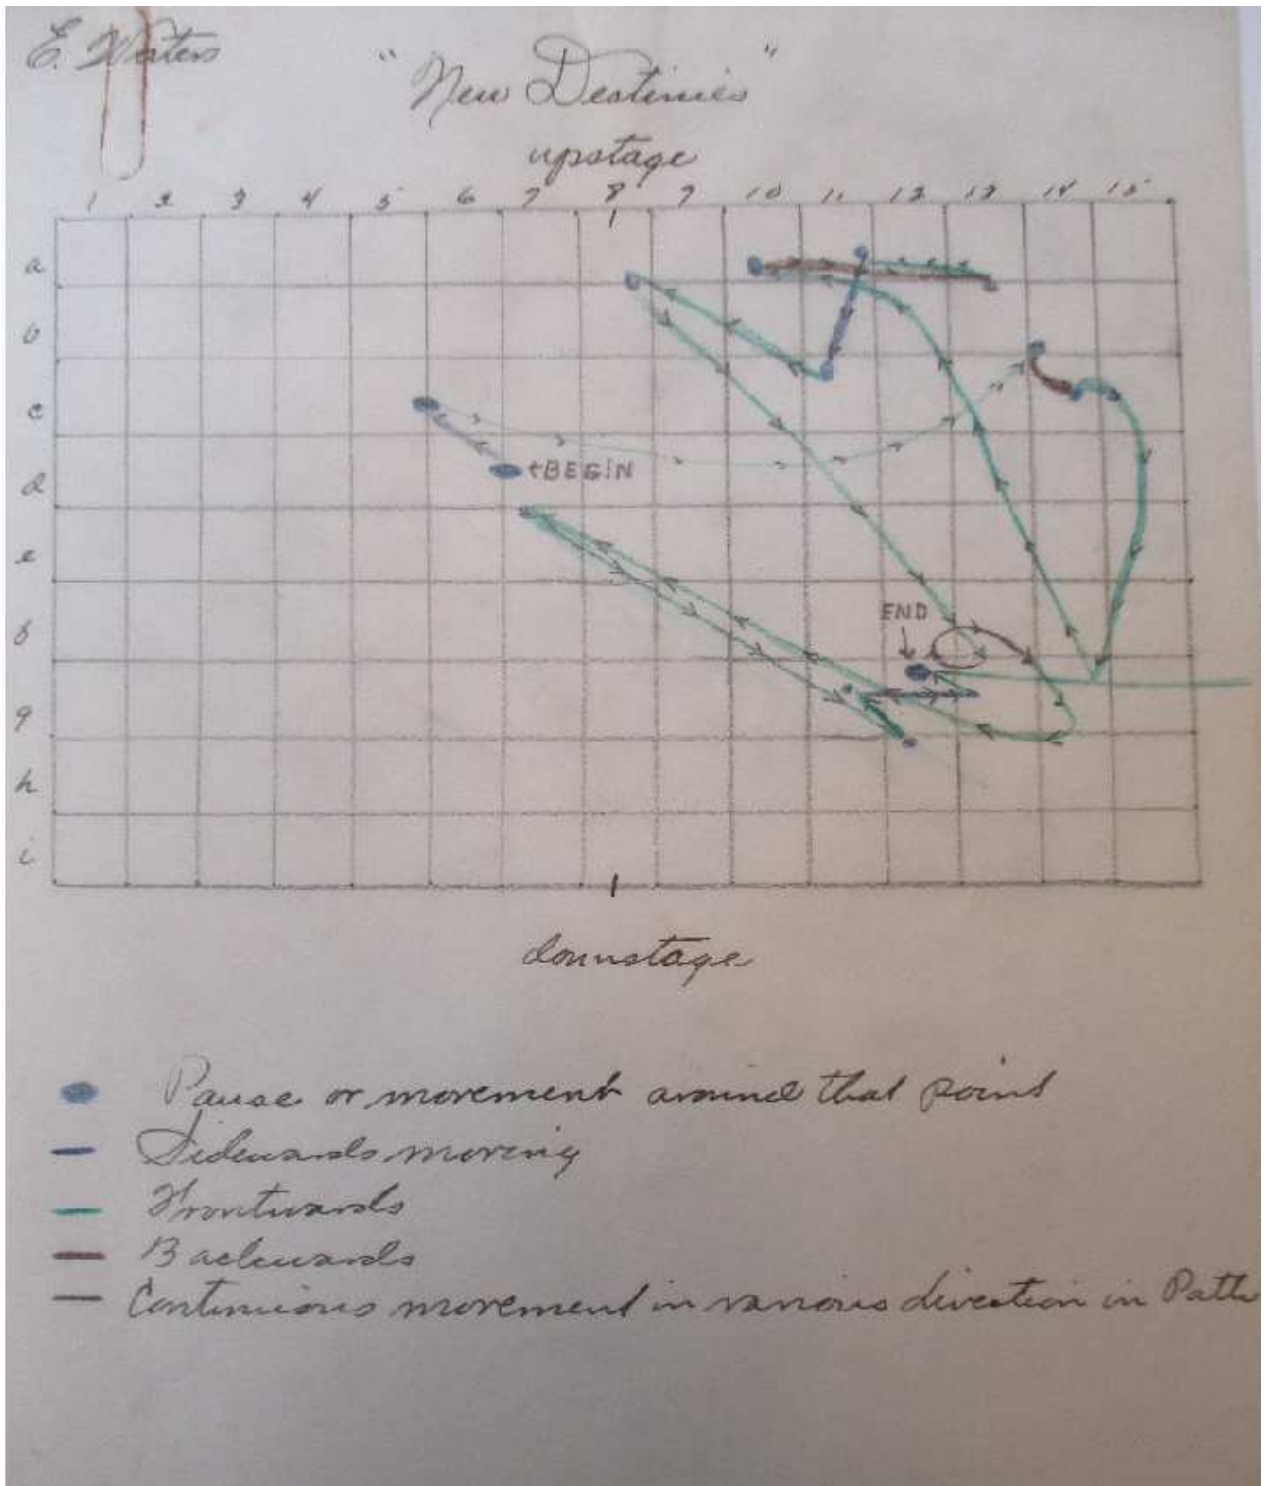 E. Waters
"New Destinies"
upstage
1 2 3 4 5 6 7 8 9 10 11 12 13 14 15
a
b
c
d
←BEGIN
e
END
f
g
h
i
downstage
Pause or movement around that point
Sidewards moving
Frontwards
Backwards
Continuous movement in various direction in Path